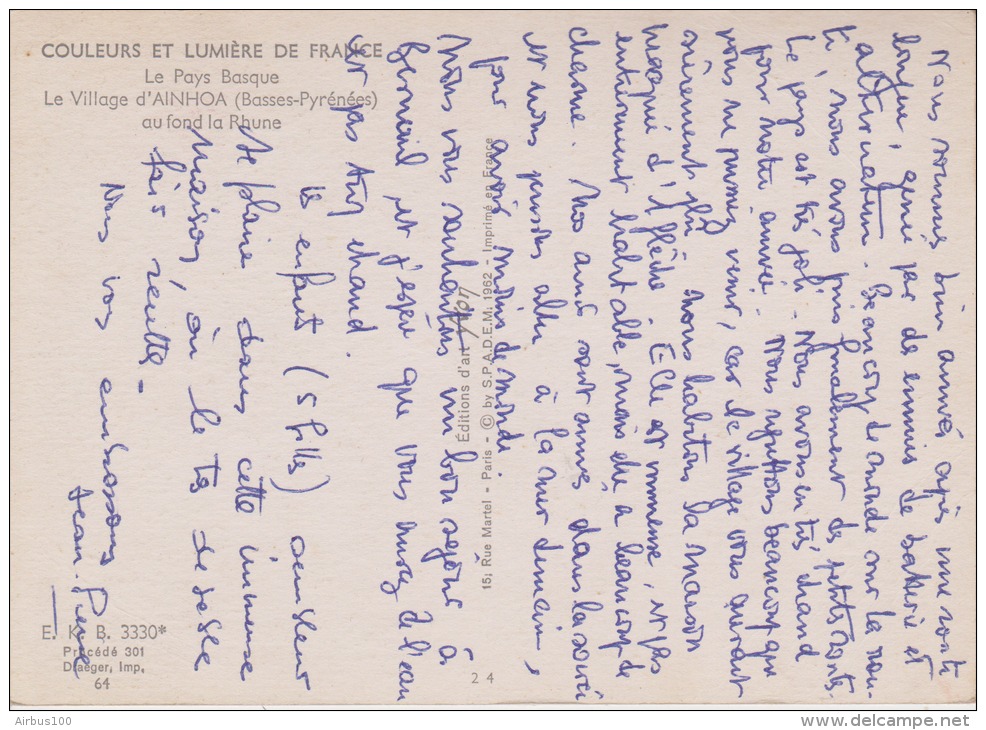 COULEURS ET LUMIÈRE DE FRANCE
Le Pays Basque
Le Village d'AINHOA (Basses-Pyrénées)
au fond la Rhune
Nous sommes bien arrivés après une route
longue, gênée par des ennuis de batterie et
alternateur. Beaucoup de monde sur la rou-
te, nous avons pris finalement des petites routes.
Le pays est très joli. Nous avons eu très chaud
pour notre arrivée. Nous regrettons beaucoup que
vous ne puissiez venir, car le village vous aurait
sûrement plu. Nous habitons la maison
d'Elle est immense, et pas
entièrement habitable, mais elle a beaucoup de
charme. Nos amis sont dans la
et nous pensons aller à la mer demain,
pour avoir moins de monde.
Nous vous souhaitons un bon séjour à
et j'espère que vous aurez de l'eau
et pas trop chaud.
Les enfants (5 filles) ont l'air
se plaire dans cette immense
maison, où le tas de sable
fais recette.
Nous vous embrassons
Jean-Pierre
Éditions d'art Yvon
15, Rue Martel - Paris - © by S.P.A.D.E.M. 1962 - Imprimé en France
E. K. B. 3330*
Procédé 301
Draeger, Imp.
64
24
Airbus100
www.delcampe.net